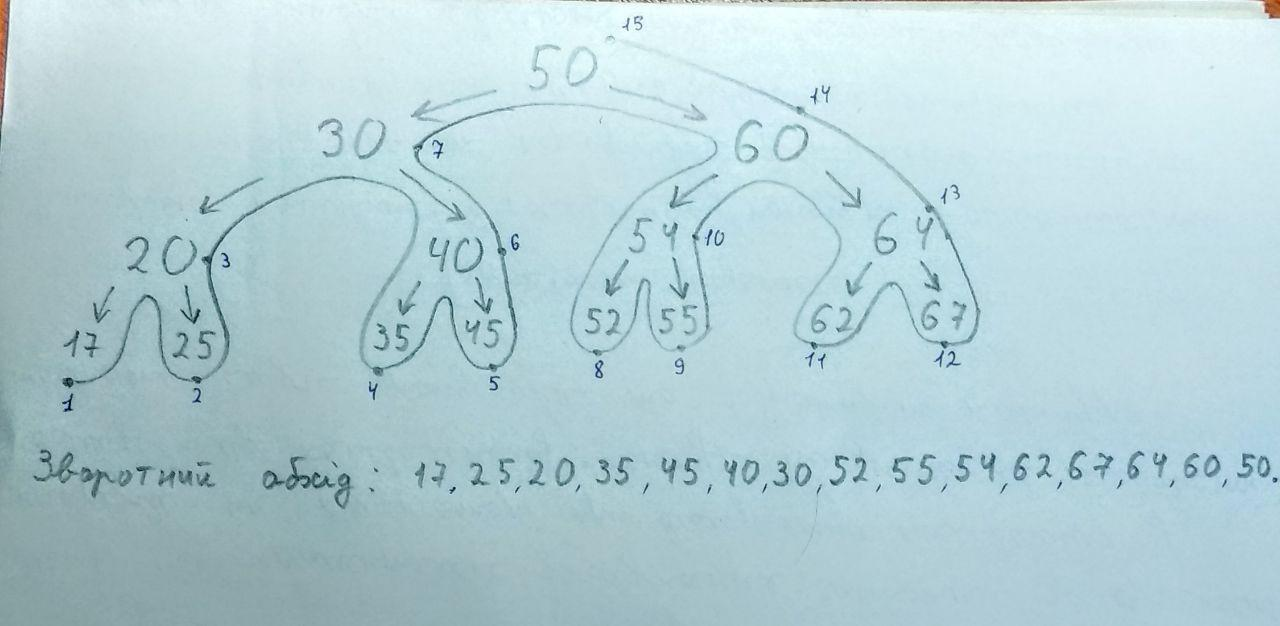 15
50
14
30 7 60
13
20 3 40 6 54 10 64
17 25 35 45 52 55 62 67
1 2 4 5 8 9 11 12
Зворотний обхід: 17, 25, 20, 35, 45, 40, 30, 52, 55, 54, 62, 67, 64, 60, 50.